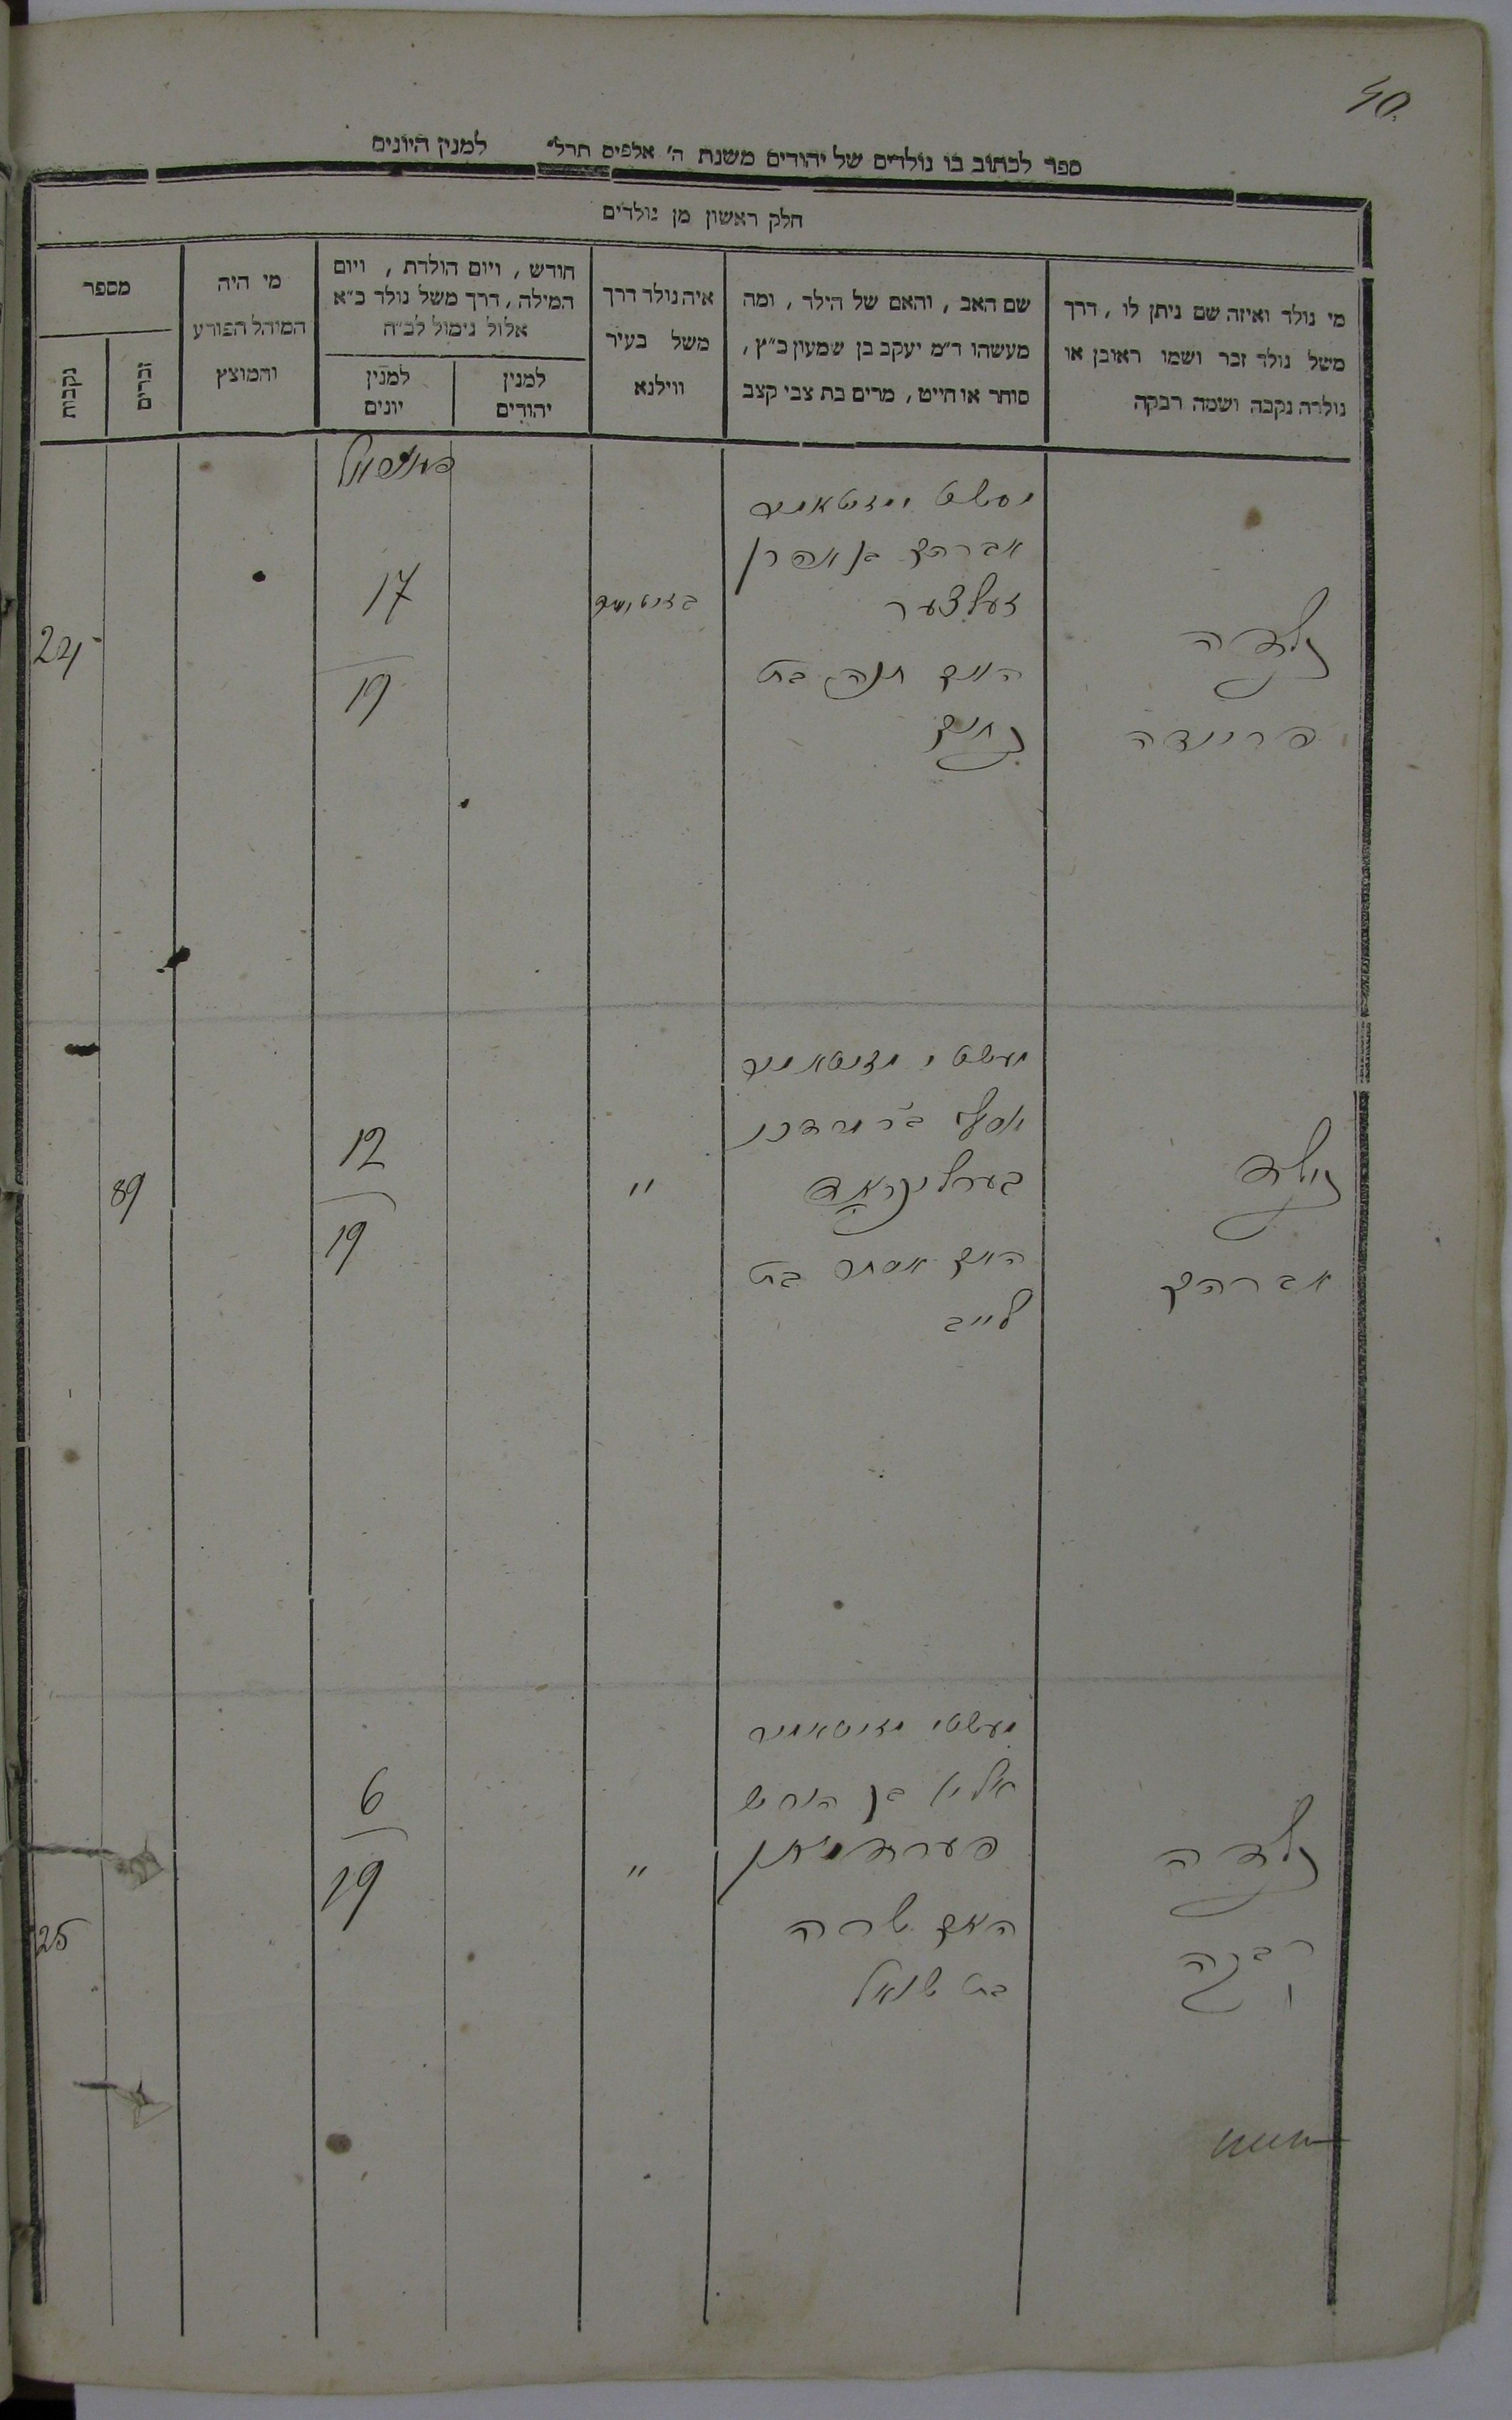 40.
ספר לכתוב בו נולדים של יהודים משנת ה' אלפים תרל" למנין היונים
חלק ראשון מן נולדים
מי נולד ואיזה שם ניתן לו, דרך
משל נולד זכר ושמו ראובן או
נולדה נקבה ושמה רבקה
שם האב, והאם של הילד, ומה
מעשהו ד״מ יעקב בן שמעון כ״ץ,
סוחר או חייט, מרים בת צבי קצב
איה נולד דרך
משל בעיר
ווילנא
חודש, ויום הולדת, ויום
המילה, דרך משל נולד כ״א
אלול נימול לכ״ח
למנין
יהודים
למנין
יונים
מי היה
המוהל הפורע
והמוצץ
מספר
זכרים
נקבות
נולדה
פריידה
אברהם בן אהרן
זעלצער
האם חנה בת
נחום
17
19
24
נולד
אברהם
בערלינראד
האם אסתר בת
לייב
"
12
19
89
נולדה
רבקה
אליא בן הירש
פערדמאן
האם שרה
בת שמואל
"
6
19
25